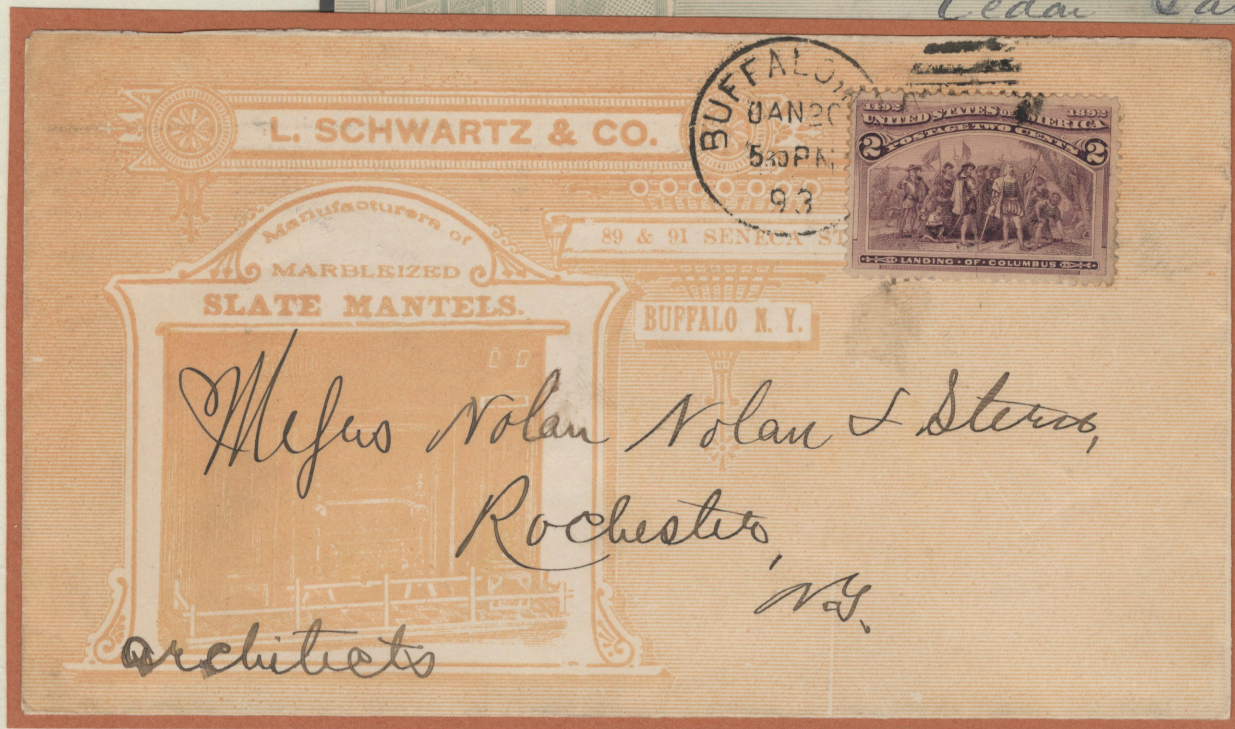 Cedar
L. SCHWARTZ & CO.
Manufacturers of
MARBLEIZED
SLATE MANTELS.
89 & 91 SENECA ST
BUFFALO N. Y.
BUFFALO, N
JAN 20
530 PM
93
1492 1892
UNITED STATES OF AMERICA
2 POSTAGE TWO CENTS 2
LANDING · OF · COLUMBUS
Messrs Nolan Nolan & Stern,
Rochester,
N.Y.
architects